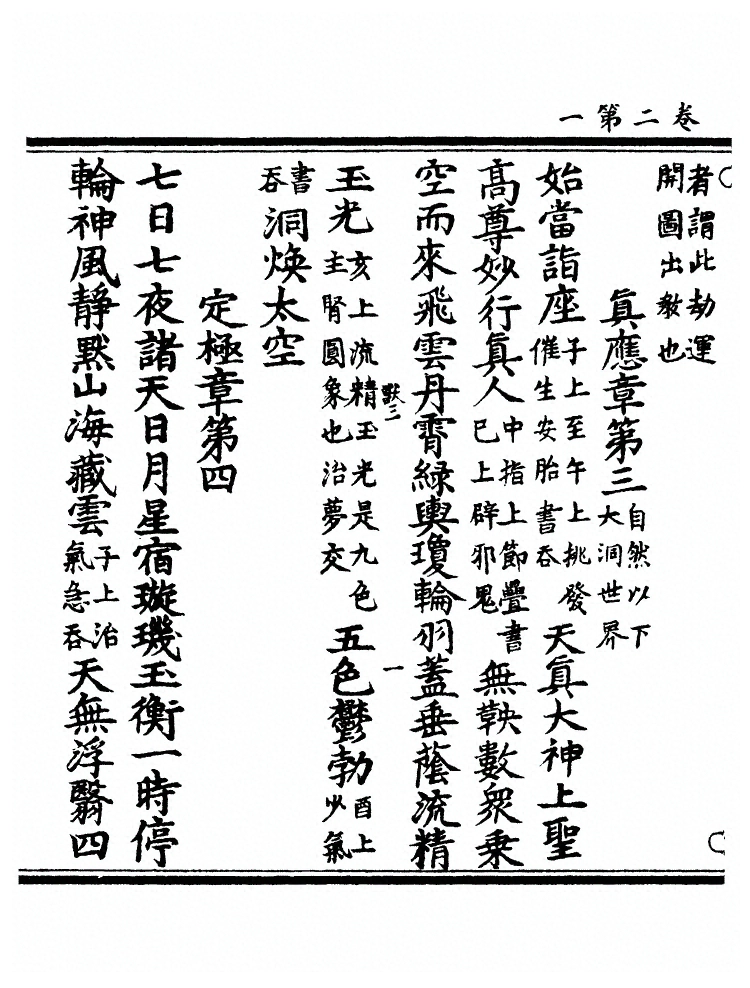 卷二第一
者謂此劫運
開圖出教也
眞應章第三自然以下大洞世界
始當詣座子上至午上挑發催生安胎書吞天眞大神上聖
高尊妙行眞人中指上節疊書已上辟邪鬼無鞅數衆乗
空而來飛雲丹霄緑輿瓊輪羽蓋垂蔭流精
一
玉光亥上流精玉光是九色主腎圓象也治夢交五色鬱勃酉上少氣
書吞洞煥太空
定極章第四
七日七夜諸天日月星宿璇璣玉衡一時停
輪神風靜黙山海藏雲子上治氣急吞天無浮翳四